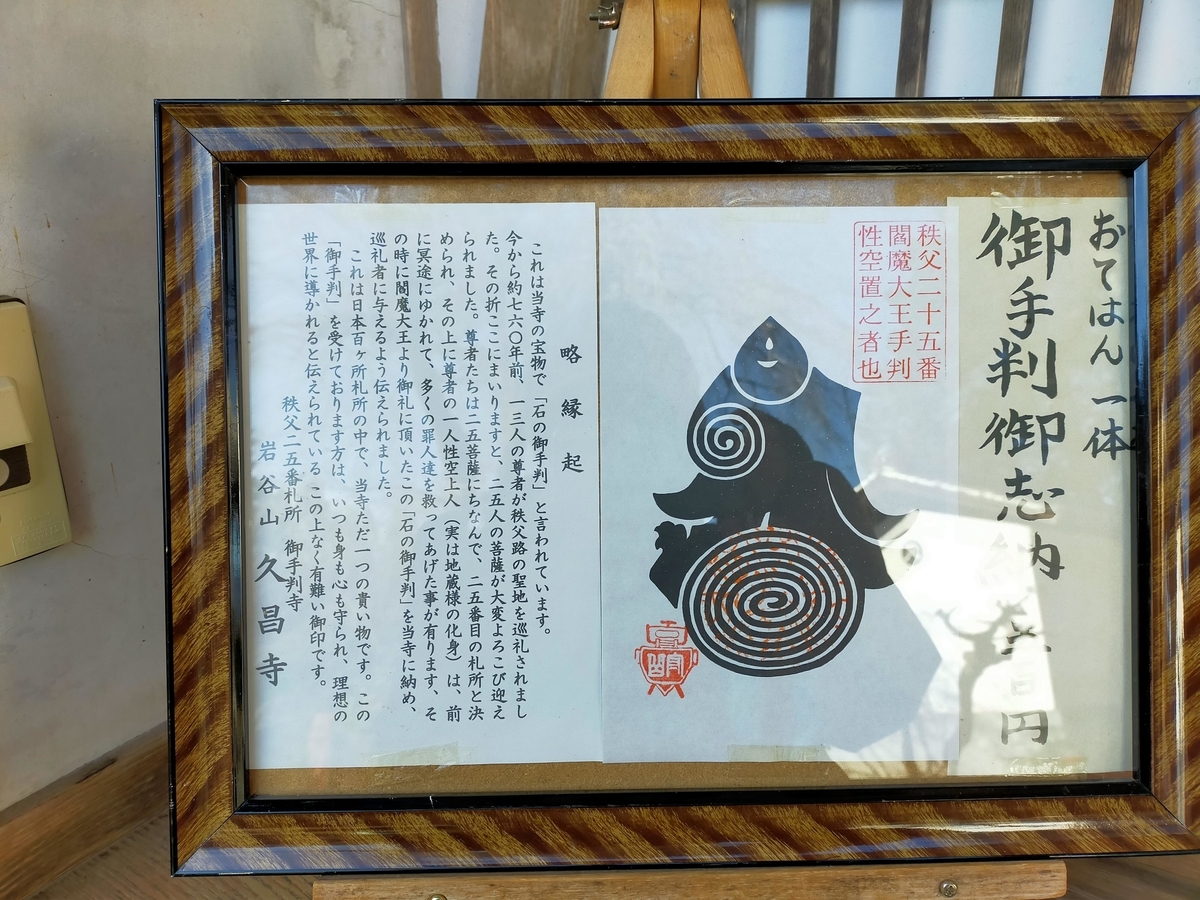 おてはん一体
御手判御志納 円
秩父二十五番
閻魔大王手判
性空置之者也
略縁起
これは当寺の宝物で「石の御手判」と言われています。
今から約七六〇年前、一三人の尊者が秩父路の聖地を巡礼されまし
た。その折ここにまいりますと、二五人の菩薩が大変よろこび迎え
られました。尊者たちは二五菩薩にちなんで、二五番目の札所と決
められ、その上に尊者の一人性空上人（実は地蔵様の化身）は、前
に冥途にゆかれて、多くの罪人達を救ってあげた事が有ります、そ
の時に閻魔大王より御礼に頂いたこの「石の御手判」を当寺に納め、
巡礼者に与えるよう伝えられました。
これは日本百ヶ所札所の中で、当寺ただ一つの貴い物です。この
「御手判」を受けております方は、いつも身も心も守られ、理想の
世界に導かれると伝えられている この上なく有難い御印です。
秩父二五番札所 御手判寺
岩谷山 久昌寺